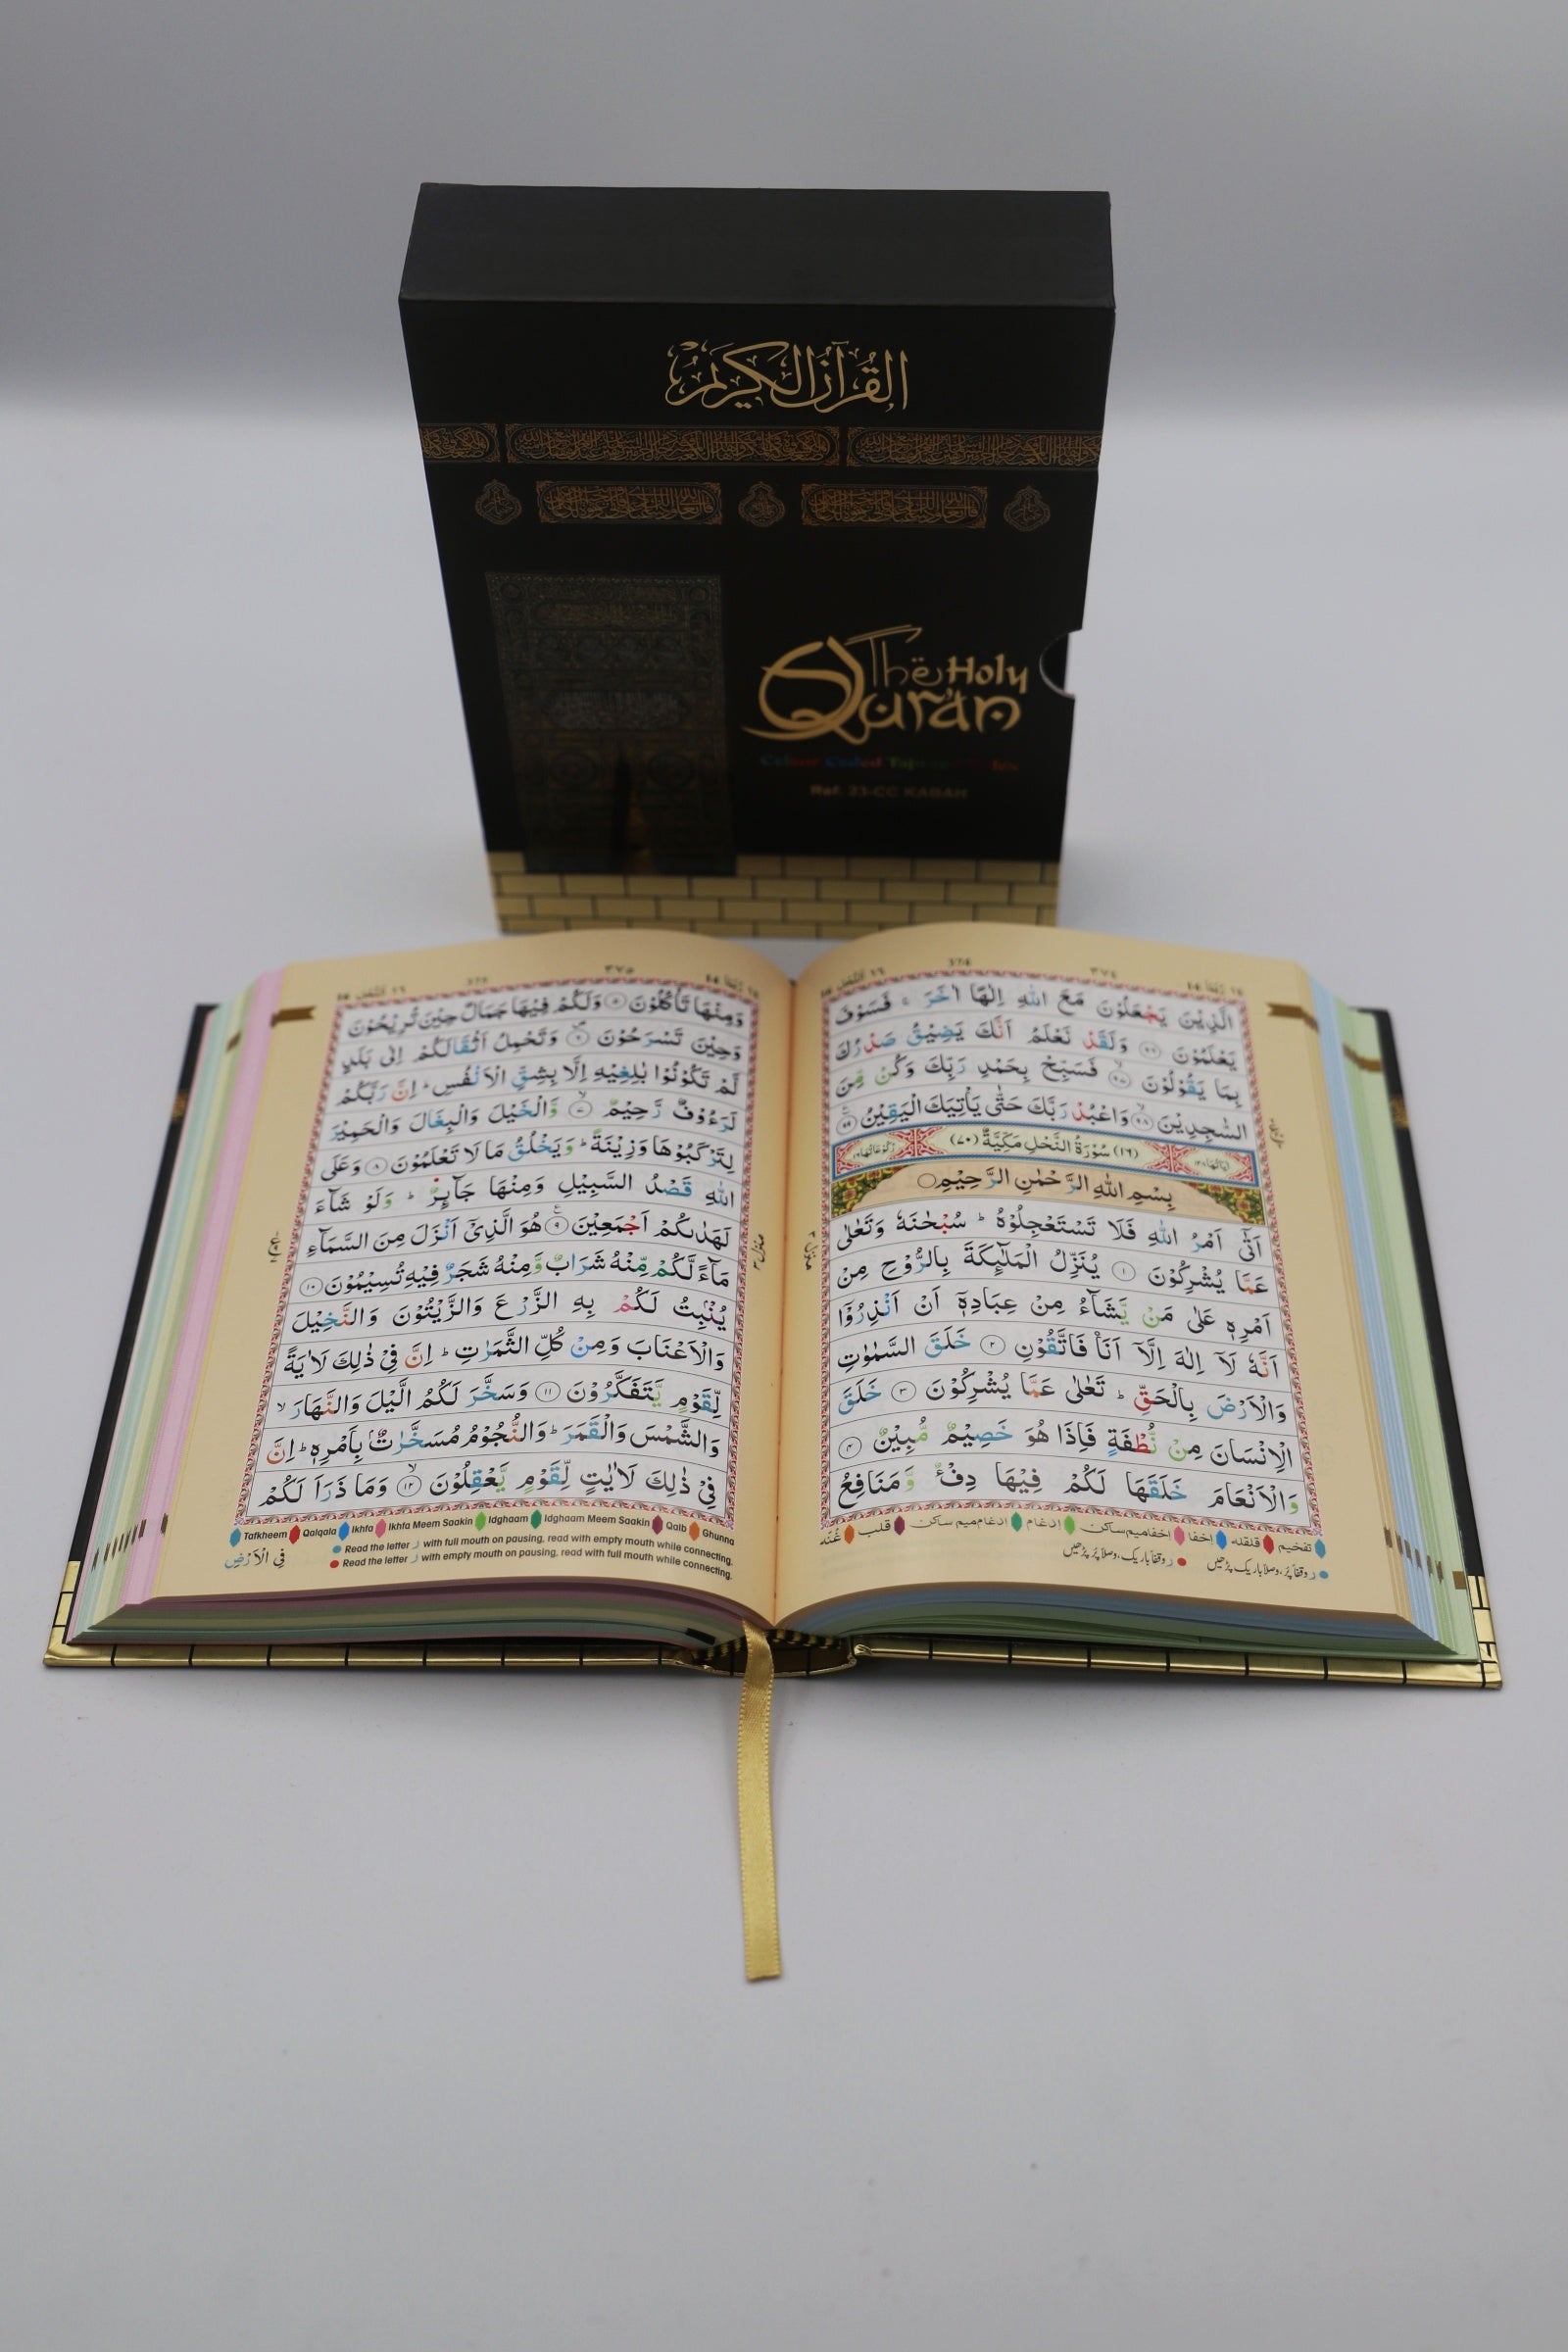 القرآن الكريم
The Holy
Qur'an
Ref. 23-CC KABAH
٣٧٤
374
الَّذِيْنَ يَجْعَلُوْنَ مَعَ اللّٰهِ اِلٰهًا اٰخَرَ ۚ فَسَوْفَ
يَعْلَمُوْنَ ﴿٩٦﴾ وَلَقَدْ نَعْلَمُ اَنَّكَ يَضِيْقُ صَدْرُكَ
بِمَا يَقُوْلُوْنَ ﴿٩٧﴾ فَسَبِّحْ بِحَمْدِ رَبِّكَ وَكُنْ مِّنَ
السّٰجِدِيْنَ ﴿٩٨﴾ وَاعْبُدْ رَبَّكَ حَتّٰى يَاْتِيَكَ الْيَقِيْنُ ﴿٩٩﴾
(١٦) سُوْرَةُ النَّحْلِ مَكِّيَّةٌ (٧٠)
بِسْمِ اللّٰهِ الرَّحْمٰنِ الرَّحِيْمِ
اَتٰۤى اَمْرُ اللّٰهِ فَلَا تَسْتَعْجِلُوْهُ ؕ سُبْحٰنَهٗ وَتَعٰلٰى
عَمَّا يُشْرِكُوْنَ ﴿١﴾ يُنَزِّلُ الْمَلٰٓئِكَةَ بِالرُّوْحِ مِنْ
اَمْرِهٖ عَلٰى مَنْ يَّشَآءُ مِنْ عِبَادِهٖۤ اَنْ اَنْذِرُوْۤا
اَنَّهٗ لَاۤ اِلٰهَ اِلَّاۤ اَنَا فَاتَّقُوْنِ ﴿٢﴾ خَلَقَ السَّمٰوٰتِ
وَالْاَرْضَ بِالْحَقِّ ؕ تَعٰلٰى عَمَّا يُشْرِكُوْنَ ﴿٣﴾ خَلَقَ
الْاِنْسَانَ مِنْ نُّطْفَةٍ فَاِذَا هُوَ خَصِيْمٌ مُّبِيْنٌ ﴿٤﴾
وَالْاَنْعَامَ خَلَقَهَا لَكُمْ فِيْهَا دِفْءٌ وَّمَنَافِعُ
تفخیم قلقله اخفا اخفامیم ساکن ادغام ادغام میم ساکن قلب غُنّه
ر وقفاً پُر، وصلاً باریک پڑھیں ر وقفاً باریک، وصلاً پُر پڑھیں
٣٧٥
وَمِنْهَا تَاْكُلُوْنَ ﴿٥﴾ وَلَكُمْ فِيْهَا جَمَالٌ حِيْنَ تُرِيْحُوْنَ
وَحِيْنَ تَسْرَحُوْنَ ﴿٦﴾ وَتَحْمِلُ اَثْقَالَكُمْ اِلٰى بَلَدٍ
لَّمْ تَكُوْنُوْا بٰلِغِيْهِ اِلَّا بِشِقِّ الْاَنْفُسِ ؕ اِنَّ رَبَّكُمْ
لَرَءُوْفٌ رَّحِيْمٌ ﴿٧﴾ وَّالْخَيْلَ وَالْبِغَالَ وَالْحَمِيْرَ
لِتَرْكَبُوْهَا وَزِيْنَةً ؕ وَيَخْلُقُ مَا لَا تَعْلَمُوْنَ ﴿٨﴾ وَعَلَى
اللّٰهِ قَصْدُ السَّبِيْلِ وَمِنْهَا جَآئِرٌ ؕ وَلَوْ شَآءَ
لَهَدٰىكُمْ اَجْمَعِيْنَ ﴿٩﴾ هُوَ الَّذِيْۤ اَنْزَلَ مِنَ السَّمَآءِ
مَآءً لَّكُمْ مِّنْهُ شَرَابٌ وَّمِنْهُ شَجَرٌ فِيْهِ تُسِيْمُوْنَ ﴿١٠﴾
يُنْۢبِتُ لَكُمْ بِهِ الزَّرْعَ وَالزَّيْتُوْنَ وَالنَّخِيْلَ
وَالْاَعْنَابَ وَمِنْ كُلِّ الثَّمَرٰتِ ؕ اِنَّ فِيْ ذٰلِكَ لَاٰيَةً
لِّقَوْمٍ يَّتَفَكَّرُوْنَ ﴿١١﴾ وَسَخَّرَ لَكُمُ الَّيْلَ وَالنَّهَارَ ۙ
وَالشَّمْسَ وَالْقَمَرَ ؕ وَالنُّجُوْمُ مُسَخَّرٰتٌۢ بِاَمْرِهٖ ؕ اِنَّ
فِيْ ذٰلِكَ لَاٰيٰتٍ لِّقَوْمٍ يَّعْقِلُوْنَ ﴿١٢﴾ وَمَا ذَرَاَ لَكُمْ
Tafkheem Qalqala Ikhfa Ikhfa Meem Saakin Idghaam Idghaam Meem Saakin Qalb Ghunna
Read the letter ر with full mouth on pausing, read with empty mouth while connecting.
Read the letter ر with empty mouth on pausing, read with full mouth while connecting.
فِي الْاَرْضِ